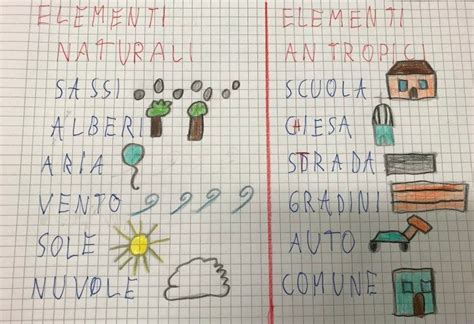 ELEMENTI
NATURALI
SASSI
ALBERI
ARIA
VENTO
SOLE
NUVOLE
ELEMENTI
ANTROPICI
SCUOLA
CHIESA
STRADA
GRADINI
AUTO
COMUNE